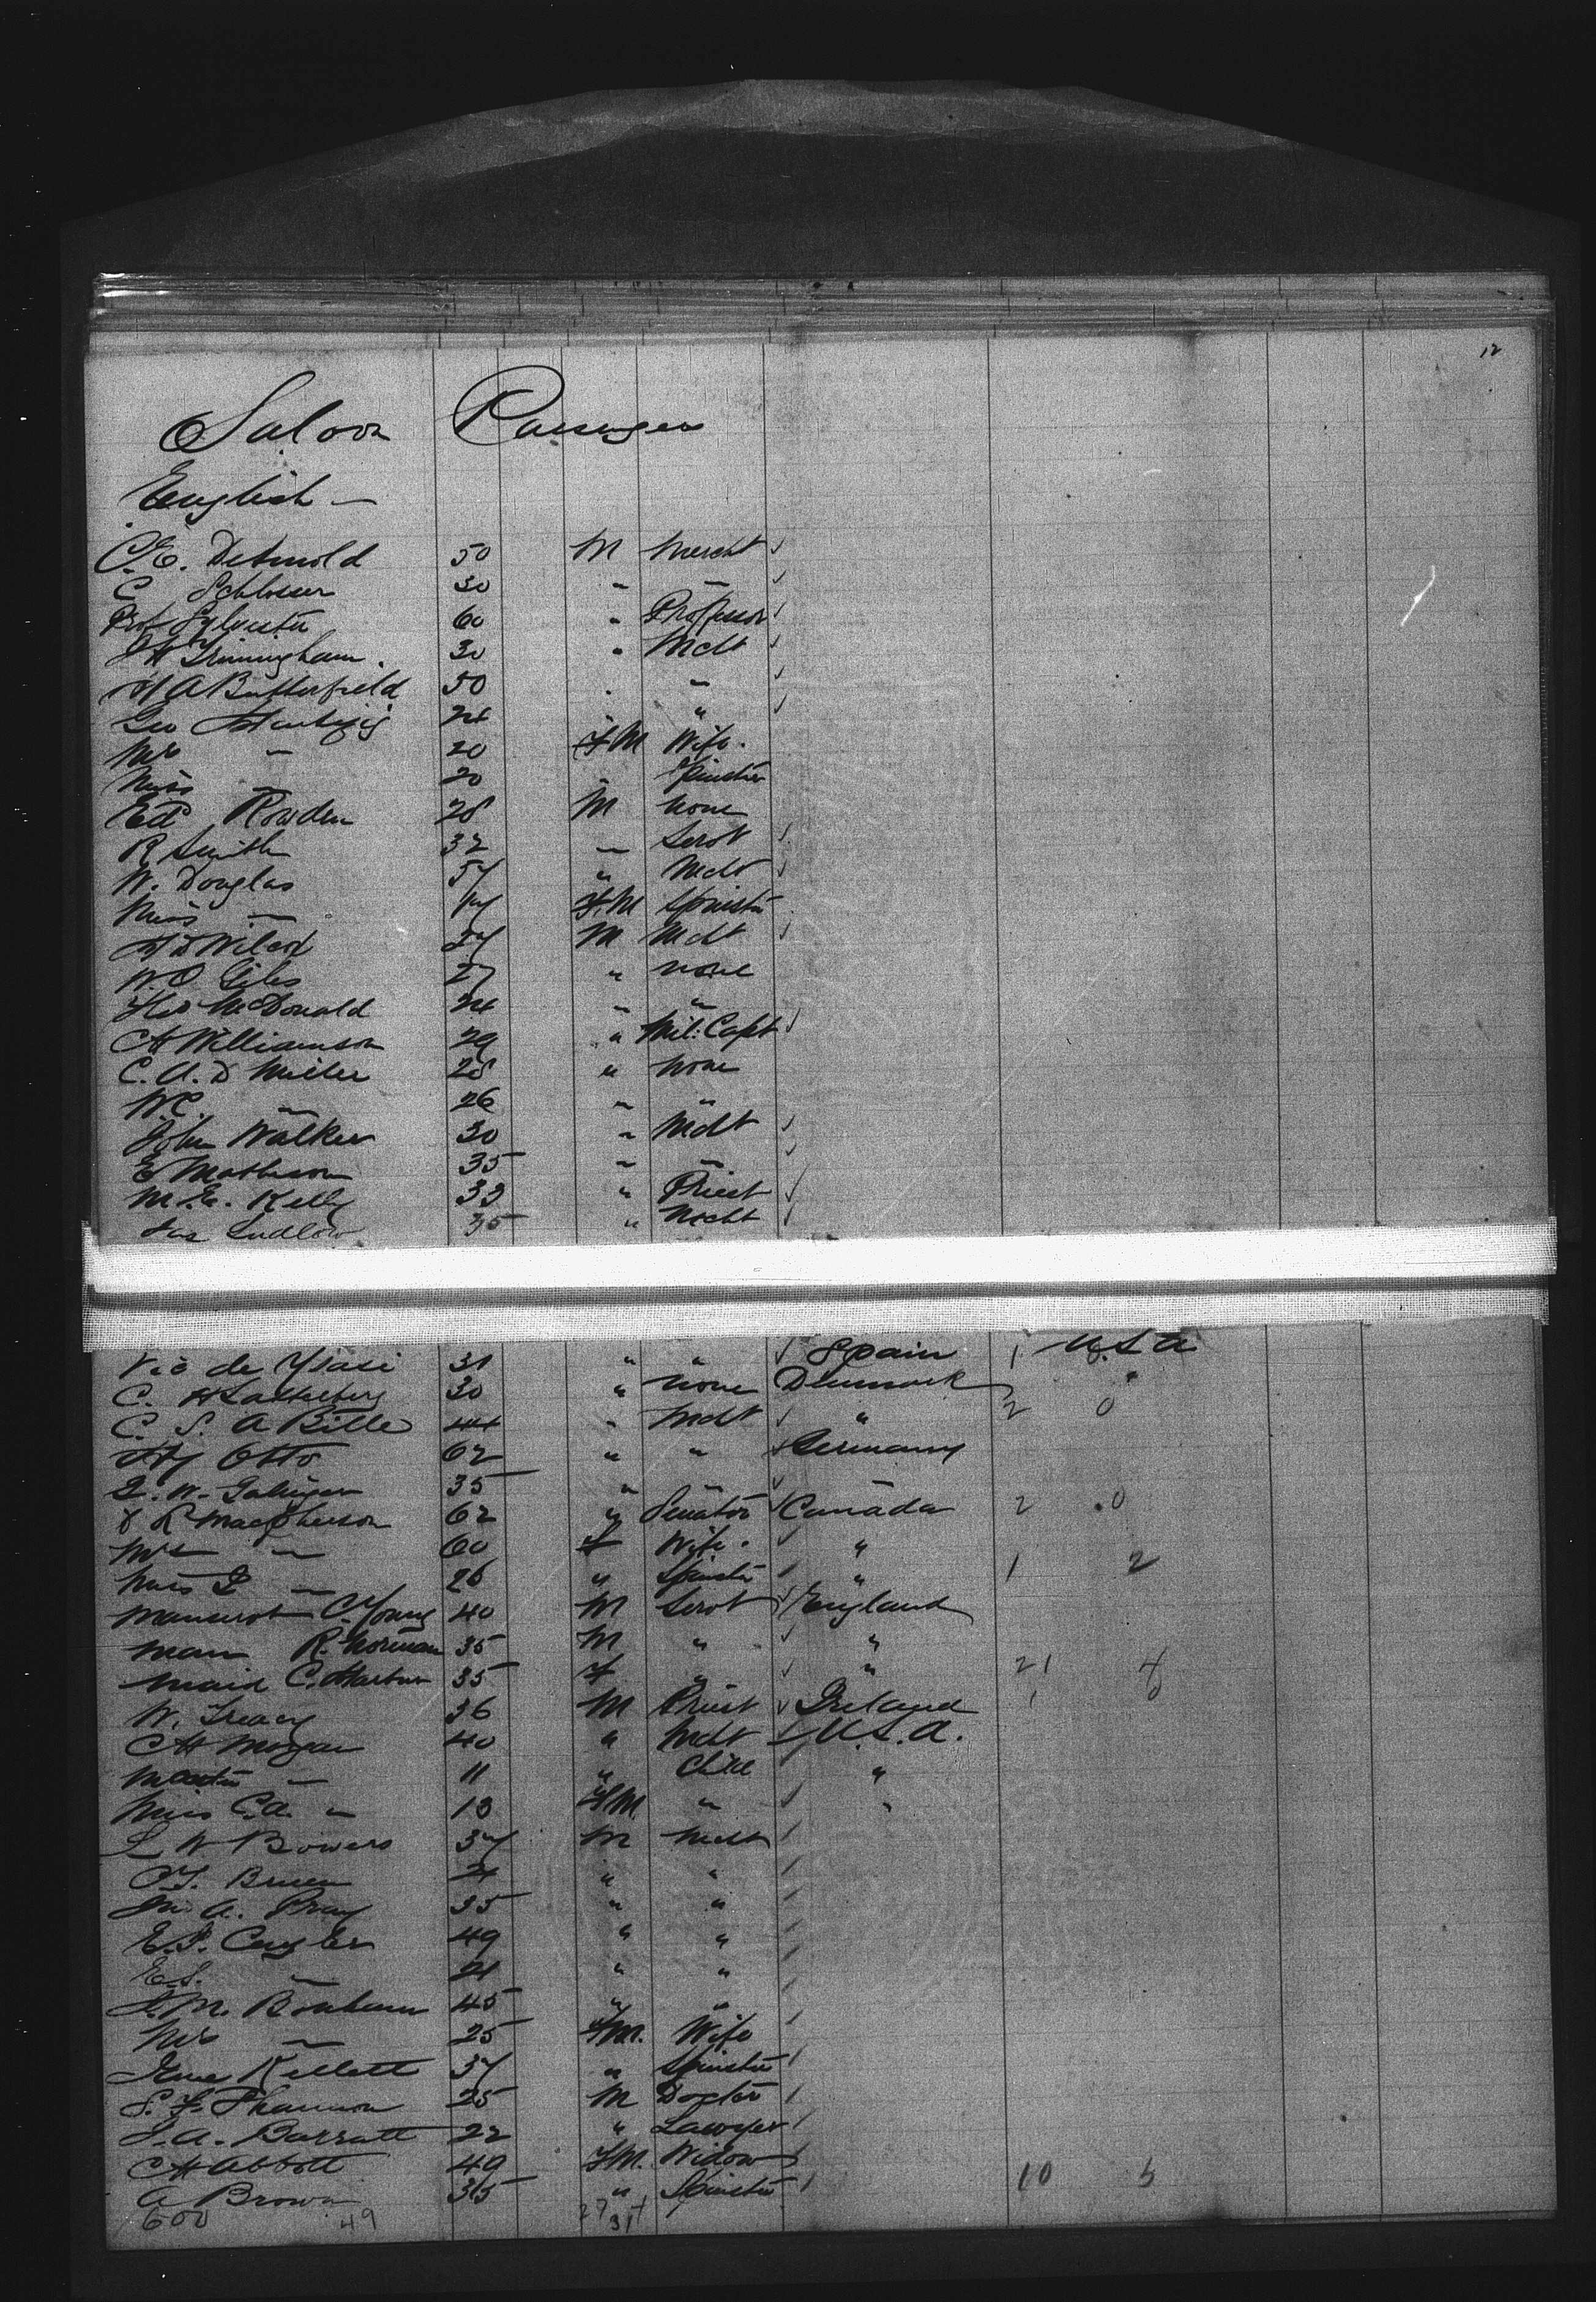 12
Saloon Passengers
English —
C. E. Detmold 50 M Mercht
C Schlosser 30 " "
Prof Sylvester 60 " Professor
J H Trimingham. 30 " Mcht
H A Butterfield 50 " "
Geo 24 " "
Mrs — 20 F M Wife.
Miss — 20 " Spinster
Ed Rowden 28 M None
R Smith 32 " Servt
W. Douglas 57 " Mcht
Miss — 17 F. M Spinster
27 M Mcht
W. O Giles 27 " none
McDonald 24 " "
C H Williamson 29 " Mil: Capt
C. A. D Miller 28 " none
W C. — 26 " "
John Walker 30 " Mcht
E Matheson 35 " "
M. E. Kelly 33 " Priest
Jas Ludlow 35 " Mcht
Vic de Ysasi 31 " " Spain 1 U.S.A
C. 30 " none Denmark
C. S. A Bille 44 " Mcht " 2 0
Hy Otto 62 " " Germany
35 " "
D L Macpherson 62 " Senator Canada 2 0
Mrs — 60 F Wife. "
Miss — 26 " Spinster " 1 2
Manservt C. Young 40 M Servt England
Man R. Norman 35 M " "
Maid C. 35 F " " 21 4
W. Treacy 36 M Priest Ireland 1
C H Morgan 40 " Mcht U.S.A.
Master — 11 " Child "
Miss C. A. — 13 F M. " "
L W Bowers 37 M Mcht
C. T. 21 " "
Jno A. Pray 35 " "
E. P. 49 " "
E. S. — 21 " "
J. M. Bonham 45 " "
Mrs — 25 F M. Wife
Jane Kellett 37 " Spinster
S. F. Shannon 25 M Doctor
J. A. Barratt 22 " Lawyer
C H Abbott 49 F M. Widow 10 5
A Brown 35 " Spinster
600 49 27 31